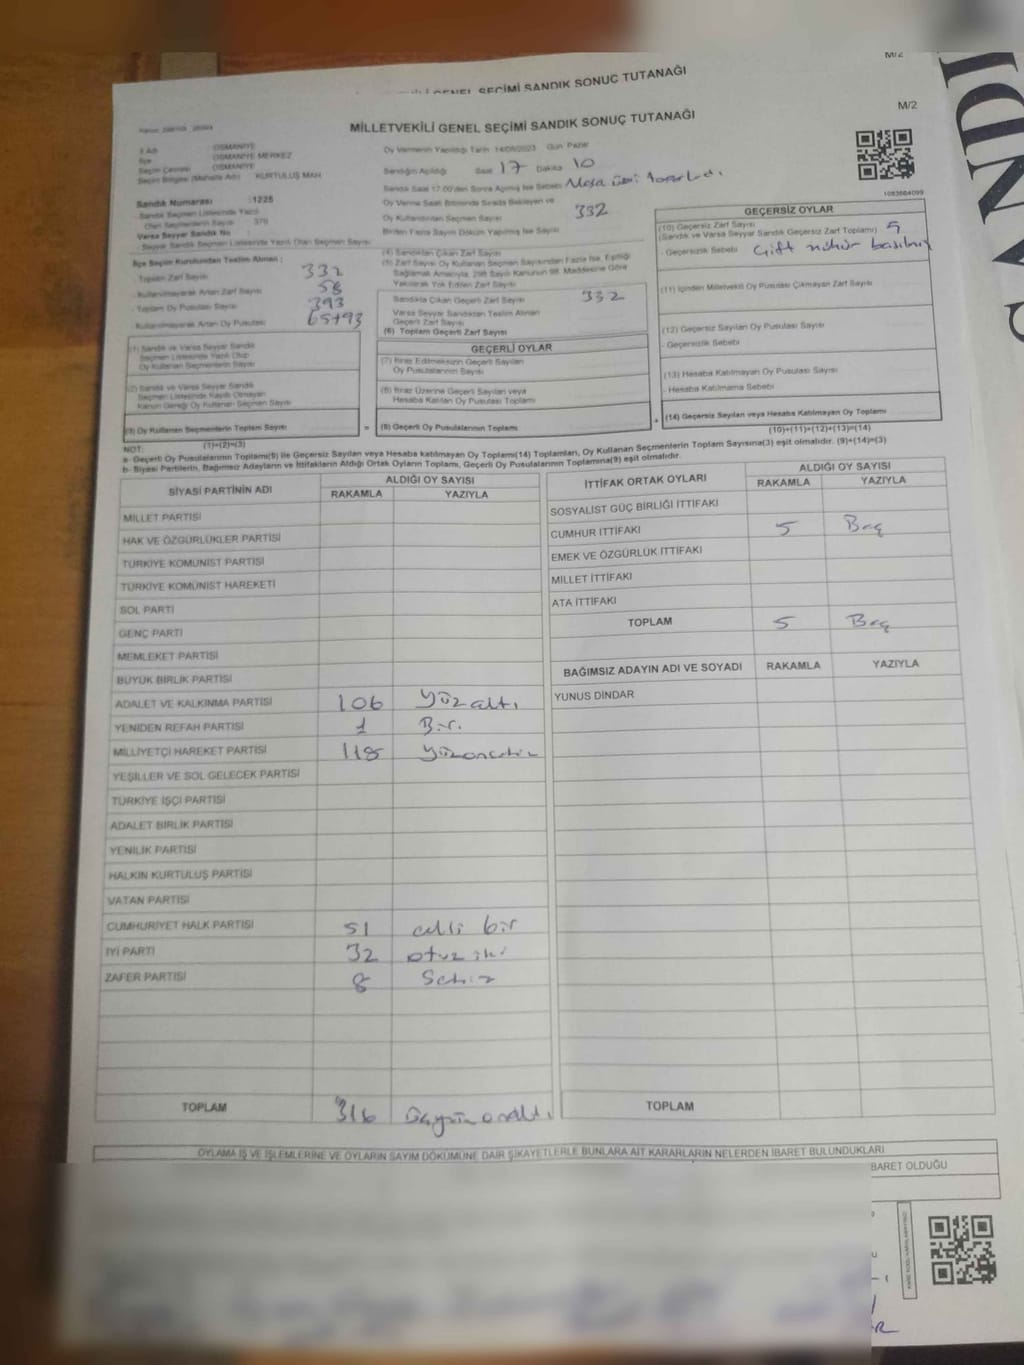 M/2
MİLLETVEKİLİ GENEL SEÇİMİ SANDIK SONUÇ TUTANAĞI
M/2
MİLLETVEKİLİ GENEL SEÇİMİ SANDIK SONUÇ TUTANAĞI
İl Adı OSMANİYE
İlçe OSMANİYE MERKEZ
Seçim Çevresi OSMANİYE
Seçim Bölgesi (Mahalle Adı) KURTULUŞ MAH
Sandık Numarası :1225
Sandık Seçmen Listesinde Yazılı
Olan Seçmenlerin Sayısı : 376
Varsa Seyyar Sandık No
Seyyar Sandık Seçmen Listesinde Yazılı Olan Seçmen Sayısı
Oy Vermenin Yapıldığı Tarih 14/05/2023 Gün Pazar
Sandığın Açıldığı Saat 17 Dakika 10
Sandık Saat 17:00'den Sonra Açılmış İse Sebebi Masa düzeni
Oy Verme Saati Bitiminde Sırada Bekleyen ve
Oy Kullandırılan Seçmen Sayısı 332
Birden Fazla Sayım Döküm Yapılmış İse Sayısı
1083664099
İlçe Seçim Kurulundan Teslim Alınan ;
- Toplam Zarf Sayısı 332
- Kullanılmayarak Artan Zarf Sayısı 58
- Toplam Oy Pusulası Sayısı 393
- Kullanılmayarak Artan Oy Pusulası 65+93
(1) Sandık ve Varsa Seyyar Sandık
Seçmen Listesinde Yazılı Olup
Oy Kullanan Seçmenlerin Sayısı
(2) Sandık ve Varsa Seyyar Sandık
Seçmen Listesinde Kayıtlı Olmayan
Kanun Gereği Oy Kullanan Seçmen Sayısı
(3) Oy Kullanan Seçmenlerin Toplam Sayısı
(1)+(2)=(3)
(4) Sandıktan Çıkan Zarf Sayısı
(5) Zarf Sayısı Oy Kullanan Seçmen Sayısından Fazla İse, Eşitliği
Sağlamak Amacıyla, 298 Sayılı Kanunun 98. Maddesine Göre
Yakılarak Yok Edilen Zarf Sayısı
Sandıkta Çıkan Geçerli Zarf Sayısı 332
Varsa Seyyar Sandıktan Teslim Alınan
Geçerli Zarf Sayısı
(6) Toplam Geçerli Zarf Sayısı
GEÇERLİ OYLAR
(7) İtiraz Edilmeksizin Geçerli Sayılan
Oy Pusulalarının Sayısı
(8) İtiraz Üzerine Geçerli Sayılan veya
Hesaba Katılan Oy Pusulası Toplamı
= (9) Geçerli Oy Pusulalarının Toplamı +
GEÇERSİZ OYLAR
(10) Geçersiz Zarf Sayısı
(Sandık ve Varsa Seyyar Sandık Geçersiz Zarf Toplamı) 5
- Geçersizlik Sebebi Çift mühür
(11) İçinden Milletvekili Oy Pusulası Çıkmayan Zarf Sayısı
(12) Geçersiz Sayılan Oy Pusulası Sayısı
- Geçersizlik Sebebi
(13) Hesaba Katılmayan Oy Pusulası Sayısı
- Hesaba Katılmama Sebebi
(14) Geçersiz Sayılan veya Hesaba Katılmayan Oy Toplamı
(10)+(11)+(12)+(13)=(14)
NOT:
a- Geçerli Oy Pusulalarının Toplamı(9) ile Geçersiz Sayılan veya Hesaba katılmayan Oy Toplamı(14) Toplamları, Oy Kullanan Seçmenlerin Toplam Sayısına(3) eşit olmalıdır. (9)+(14)=(3)
b- Siyasi Partilerin, Bağımsız Adayların ve İttifakların Aldığı Ortak Oyların Toplamı, Geçerli Oy Pusulalarının Toplamına(9) eşit olmalıdır.
SİYASİ PARTİNİN ADI ALDIĞI OY SAYISI
RAKAMLA YAZIYLA
MİLLET PARTİSİ
HAK VE ÖZGÜRLÜKLER PARTİSİ
TÜRKİYE KOMÜNİST PARTİSİ
TÜRKİYE KOMÜNİST HAREKETİ
SOL PARTİ
GENÇ PARTİ
MEMLEKET PARTİSİ
BÜYÜK BİRLİK PARTİSİ
ADALET VE KALKINMA PARTİSİ 106 Yüzaltı
YENİDEN REFAH PARTİSİ 1 Bir.
MİLLİYETÇİ HAREKET PARTİSİ 118
YEŞİLLER VE SOL GELECEK PARTİSİ
TÜRKİYE İŞÇİ PARTİSİ
ADALET BİRLİK PARTİSİ
YENİLİK PARTİSİ
HALKIN KURTULUŞ PARTİSİ
VATAN PARTİSİ
CUMHURİYET HALK PARTİSİ 51 elli bir
İYİ PARTİ 32 otuz iki
ZAFER PARTİSİ 8 Sekiz
TOPLAM 316 Üçyüzonaltı
İTTİFAK ORTAK OYLARI ALDIĞI OY SAYISI
RAKAMLA YAZIYLA
SOSYALİST GÜÇ BİRLİĞİ İTTİFAKI
CUMHUR İTTİFAKI 5 Beş
EMEK VE ÖZGÜRLÜK İTTİFAKI
MİLLET İTTİFAKI
ATA İTTİFAKI
TOPLAM 5 Beş
BAĞIMSIZ ADAYIN ADI VE SOYADI RAKAMLA YAZIYLA
YUNUS DİNDAR
TOPLAM
OYLAMA İŞ VE İŞLEMLERİNE VE OYLARIN SAYIM DÖKÜMÜNE DAİR ŞİKAYETLERLE BUNLARA AİT KARARLARIN NELERDEN İBARET BULUNDUKLARI
BARET OLDUĞU